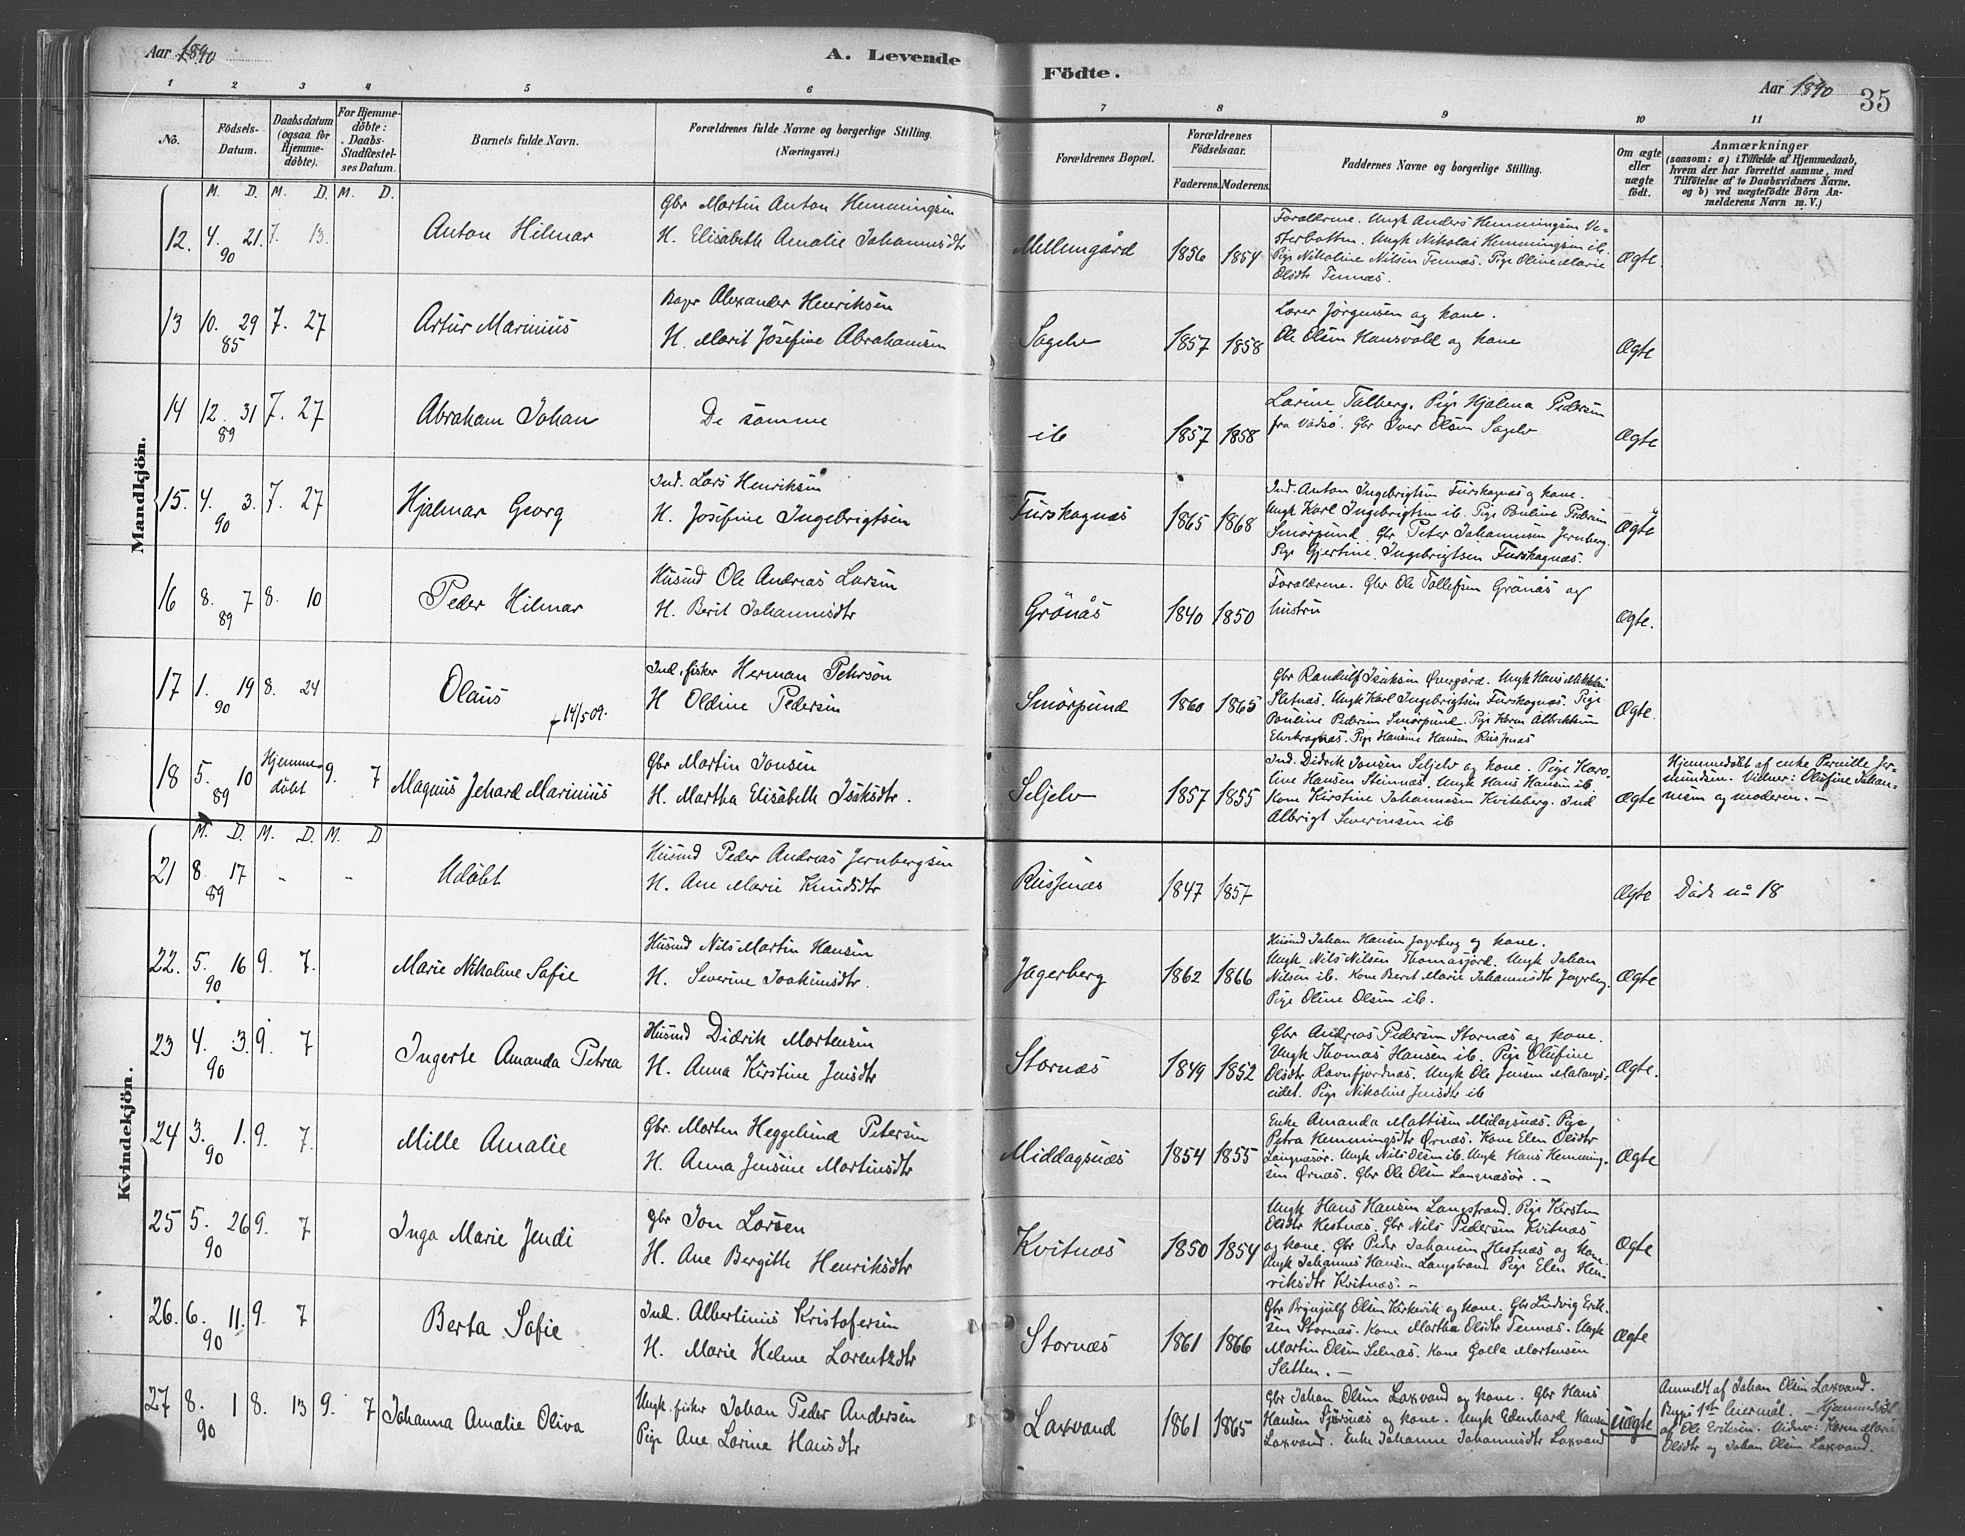 Aar 1890
A. Levende
Födte.
Aar 1890
35
1 2 3 4 5 6 7 8 9 10 11
No.
Födsels-
Datum.
Daabsdatum
(ogsaa for
Hjemme-
döbte).
For Hjemme-
döbte:
Daabs-
Stadfæstel-
ses Datum.
Barnets fulde Navn.
Forældrenes fulde Navne og borgerlige Stilling.
(Næringsvei.)
Forældrenes Bopæl.
Forældrenes
Födselsaar.
Faderens. Moderens.
Faddernes Navne og borgerlige Stilling.
Om ægte
eller
uægte
födt.
Anmærkninger
(saasom: a) i Tilfælde af Hjemmedaab,
hvem der har forrettet samme, med
Tilföielse af to Daabsvidners Navne,
og b) ved uægtefödte Börn An-
melderens Navn m. V.)
Mandkjön.
M. D. M. D. M. D.
12. 4. 21. 90 7. 13. Anton Hilmar
Gbr Martin Anton Hemmingsen
H. Elisabeth Amalie Johannisdtr
Mellemgård 1856 1854
Forældrene. Ungk Anders Hemmingsen Ve-
sterbotten. Ungk Nikolai Hemmingsen ib.
Pige Nikoline Nilsen Tennæs. Pige Oline Marie
Olsdtr Tennæs.
Ægte.
13 10. 29 85 7. 27 Artur Marinius
Bager Alexander Henriksen
H. Marit Josefine Abrahamsen
Sagelv 1857 1858
Lærer Jørgensen og kone.
Ole Olsen Hansvold og kone
Ægte
14 12. 31 89 7. 27 Abraham Johan
De samme
ib 1857 1858
Larine Talberg. Pige Hjalma Pedersen
fra Vadsö. Gbr Iver Olsen Sagelv
Ægte
15. 4. 3. 90 7. 27 Hjalmar Georg
Ind. Lars Henriksen
H. Josefine Ingebrigtsen
Furskognæs 1865 1868
Ind. Anton Ingebrigtsen Furskognæs og kone.
Ungk Karl Ingebrigtsen ib. Pige Pauline Pedersen
Smörpund. Gbr Peter Johannesen Jernberg.
Pige Gjertine Ingebrigtsen Furskognæs.
Ægte
16 8. 7 89 8. 10 Peder Hilmar
Husmd Ole Andreas Larsen
H. Berit Johannisdtr
Grönås 1840 1850
Forældrene. Gbr Ole Tollefsen Grönås og
hustru
Ægte.
17 1. 19 90 8. 24 Olaus
† 14/5 09.
Ind. fisker Herman Peterson
H Oldine Pedersen
Smörpund 1860 1865
Gbr Randulf Isaksen Övergård. Ungk Hans Mikkelsen
Sletnæs. Ungk Karl Ingebrigtsen Furskognæs. Pige
Pauline Pedersen Smörpund. Pige Karen Albriktsen
Pige Hansine Hansen Russenæs
Ægte.
18 5. 10 89 Hjemme-
döbt 9. 7 Magnus Jehard Marinius
Gbr Martin Jonsen
H. Martha Elisabeth Isaksdtr.
Seljelv 1857 1855
Ind. Didrik Jonsen Seljelv og kone. Pige Karo-
line Hansen Stennæs. Ungk Hans Hansen ib.
Kone Kirstine Johannesen Kviteberg. Ind
Albrigt Severinsen ib
Ægte
Hjemmedöbt af enke Pernille Jer-
mundsen. Vidner: Olufine Johan-
nesen og moderen. —
Kvindekjön.
M. D. M. D. M. D
21 8. 17 89 - - Udöbt
Husmd Peder Andreas Jernbergsen
H. Ane Marie Knudsdtr
Russenæs 1847 1857
Ægte Döde no 18
22. 5. 16 90 9. 7. Marie Nikoline Sofie
Husmd Nils Martin Hansen
H. Severine Joakimsdtr.
Jagerberg 1862 1866
Husmd Johan Hansen Jagerberg og kone.
Ungk Nils Nilsen Thomasjord. Ungk Johan
Nilsen ib. Kone Berit Marie Johannisdtr Jagerberg.
Pige Oline Olsen ib.
Ægte
23 4. 3. 90 9. 7 Ingerte Amanda Petrea
Husmd Didrik Mortensen
H. Anna Kirstine Jensdtr
Stornæs 1849 1852
Gbr Andreas Pedersen Stornæs og kone.
Ungk Thomas Hansen ib. Pige Olufine
Olsdtr Ravnfjordnæs. Ungk Ole Jensen Malangs-
eidet. Pige Nikoline Jensdtr ib
Ægte.
24 3. 1. 90 9. 7. Mille Amalie
Gbr. Morten Heggelund Petersen
H. Anna Jensine Martinsdtr
Middagsnæs 1854 1855
Enke Amanda Mattisen Midagsnæs. Pige
Petra Hemmingsdtr Örnæs. Kone Elen Olsdtr
Langnæsör. Ungk Nils Olsen ib. Ungk Hans Hemming-
sen Örnæs. Gbr Ole Olsen Langnæsör. —
Ægte
25 5. 26 90 9. 7 Inga Marie Jendi
Gbr Jon Larsen
H. Ane Bergitte Henriksdtr
Kvitnæs 1850 1854
Ungk Hans Hansen Langstrand. Pige Kirsten
Elisdtr Hestnæs. Gbr Nils Pedersen Kvitnæs
og kone. Gbr Peder Johansen Hestnæs og kone
Ungk Johannes Hansen Langstrand Pige Elen Hen-
riksdtr Kvitnæs. —
Ægte
26. 6. 11. 90 9. 7 Berta Sofie
Ind. Albertinus Kristofersen
H. Marie Helene Lorentzdtr
Stornæs 1861 1866
Gbr Brynjulf Olsen Kirkevik og kone. Gbr Ludvig Erik-
sen Stornæs. Kone Martha Olsdtr Tennæs. Ungk
Martin Olsen Selnæs. Kone Golla Mortensen
Sletten. —
Ægte
27 8. 1 90 8. 13 9. 7 Johanna Amalie Oliva
Ungk. fisker Johan Peder Andersen
Pige Ane Larine Hansdtr
Laxvand 1861 1865
Gbr Johan Olsen Laxvand og kone. Gbr Hans
Hansen Sjörnæs og kone. Ungk Edenhard Hansen
Laxvand. Enke Johanne Johannisdtr Laxvand
uægte
Anmeldt af Johan Olsen Laxvand.
Begges 1st leiermål. — Hjemmedöbt
af Ole Eriksen. Vidner: Karen Marie
Olsdtr og Johan Olsen Laxvand.